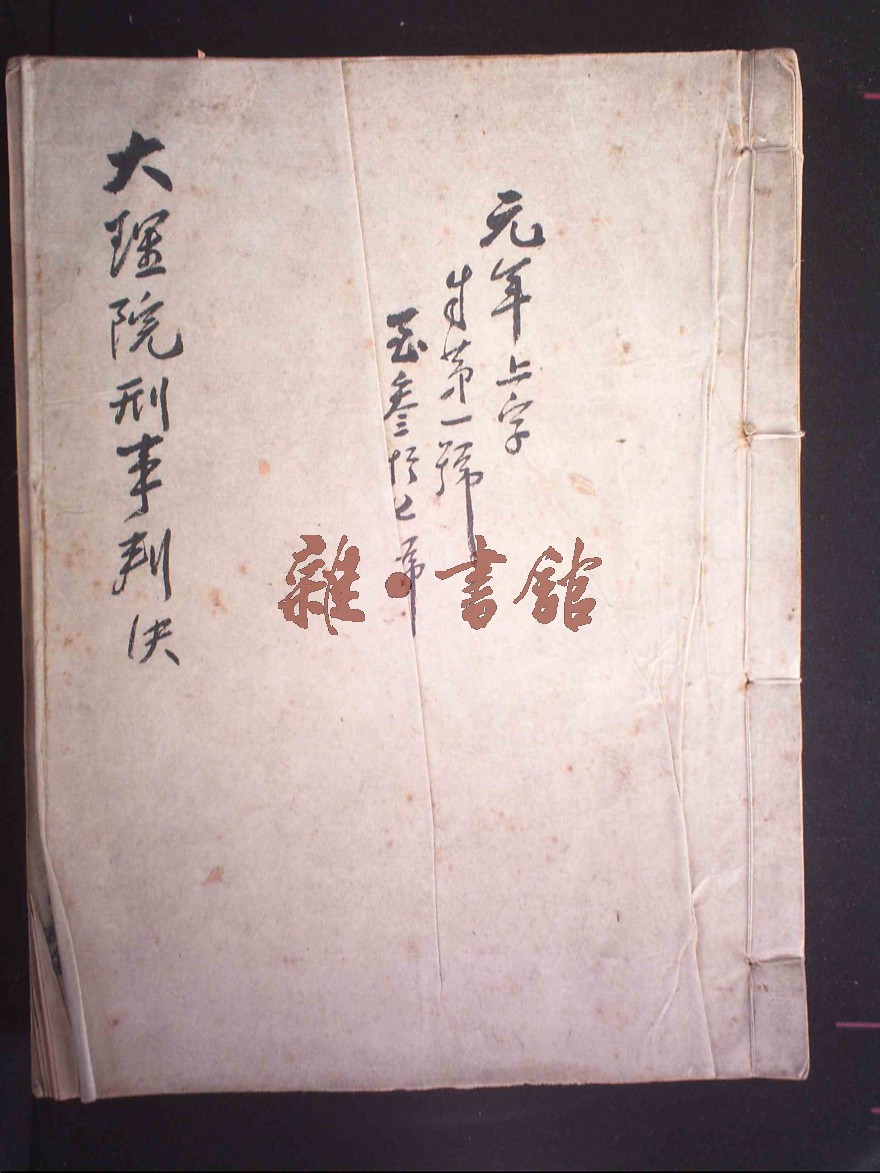 元年上字
自第一號
至叁拾七號
大理院刑事判決
雜·書館